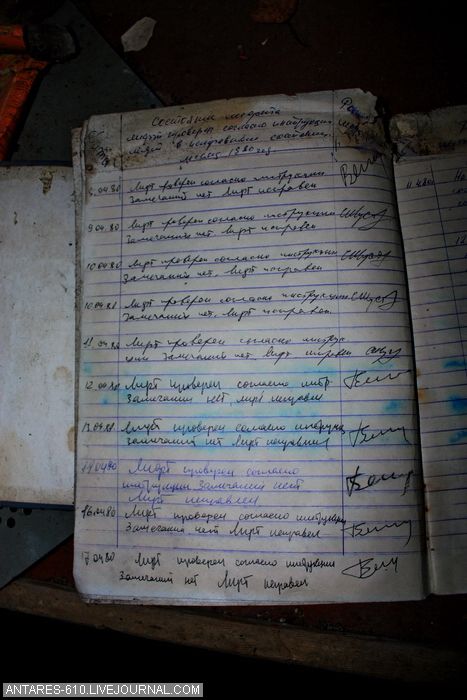 Состояние лифта
Лифт проверен согласно инструкции
лифт в исправном состоянии
1980 год
04.80 Лифт проверен согласно инструкции
Замечаний нет Лифт исправен
9.04.80 Лифт проверен согласно инструкции
Замечаний нет. Лифт исправен
10.04.80 Лифт проверен согласно инструкции
Замечаний нет, Лифт исправен
10.04.80 Лифт проверен согласно инструкции
Замечаний нет, Лифт исправен.
11.04.80 Лифт проверен согласно инструк
ции Замечаний нет, Лифт исправен
12.04.80 Лифт проверен согласно
Замечаний нет, лифт исправен
13.04.80 Лифт проверен согласно инструкц
замечаний нет Лифт исправен
14.04.80 Лифт проверен согласно
инструкции Замечаний нет
Лифт исправен
16.04.80 Лифт проверен согласно инструкции
Замечаний нет Лифт исправен
17.04.80 Лифт проверен согласно инструкции
Замечаний нет Лифт исправен
11.4.80
ANTARES-610.LIVEJOURNAL.COM